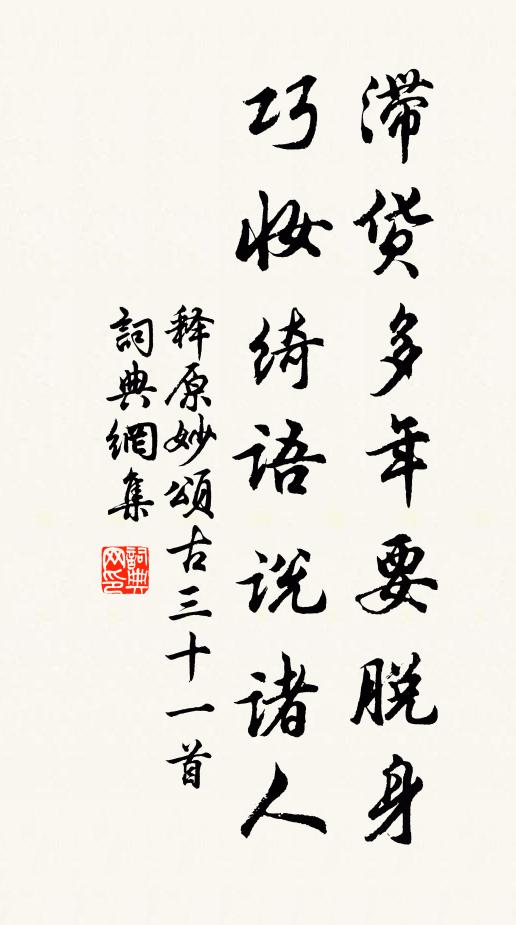 滞货多年要脱身
巧妆绮语说诸人
释原妙颂古三十一首
詞典網集
詞典网印